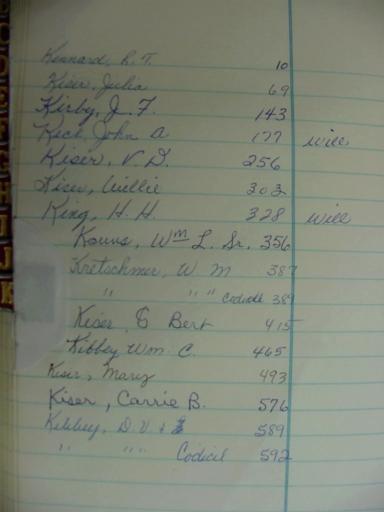 Kennard, R. T. 10
Kiser, Julia 69
Kirby, J. F. 143
Keck, John A 177 will
Kiser, V. D. 256
Kiser, Willie 303
King, H. H. 328 will
Kouns, Wm L. Sr. 356
Kretschmer, W. M 387
" " " Codicil 389
Kiser, E Bert 415
Kibbey Wm. C. 465
Kiser, Mary 493
Kiser, Carrie B. 576
Kibbey, D. V. 589
" " " Codicil 592
C
D
E
F
G
H
I
J
K